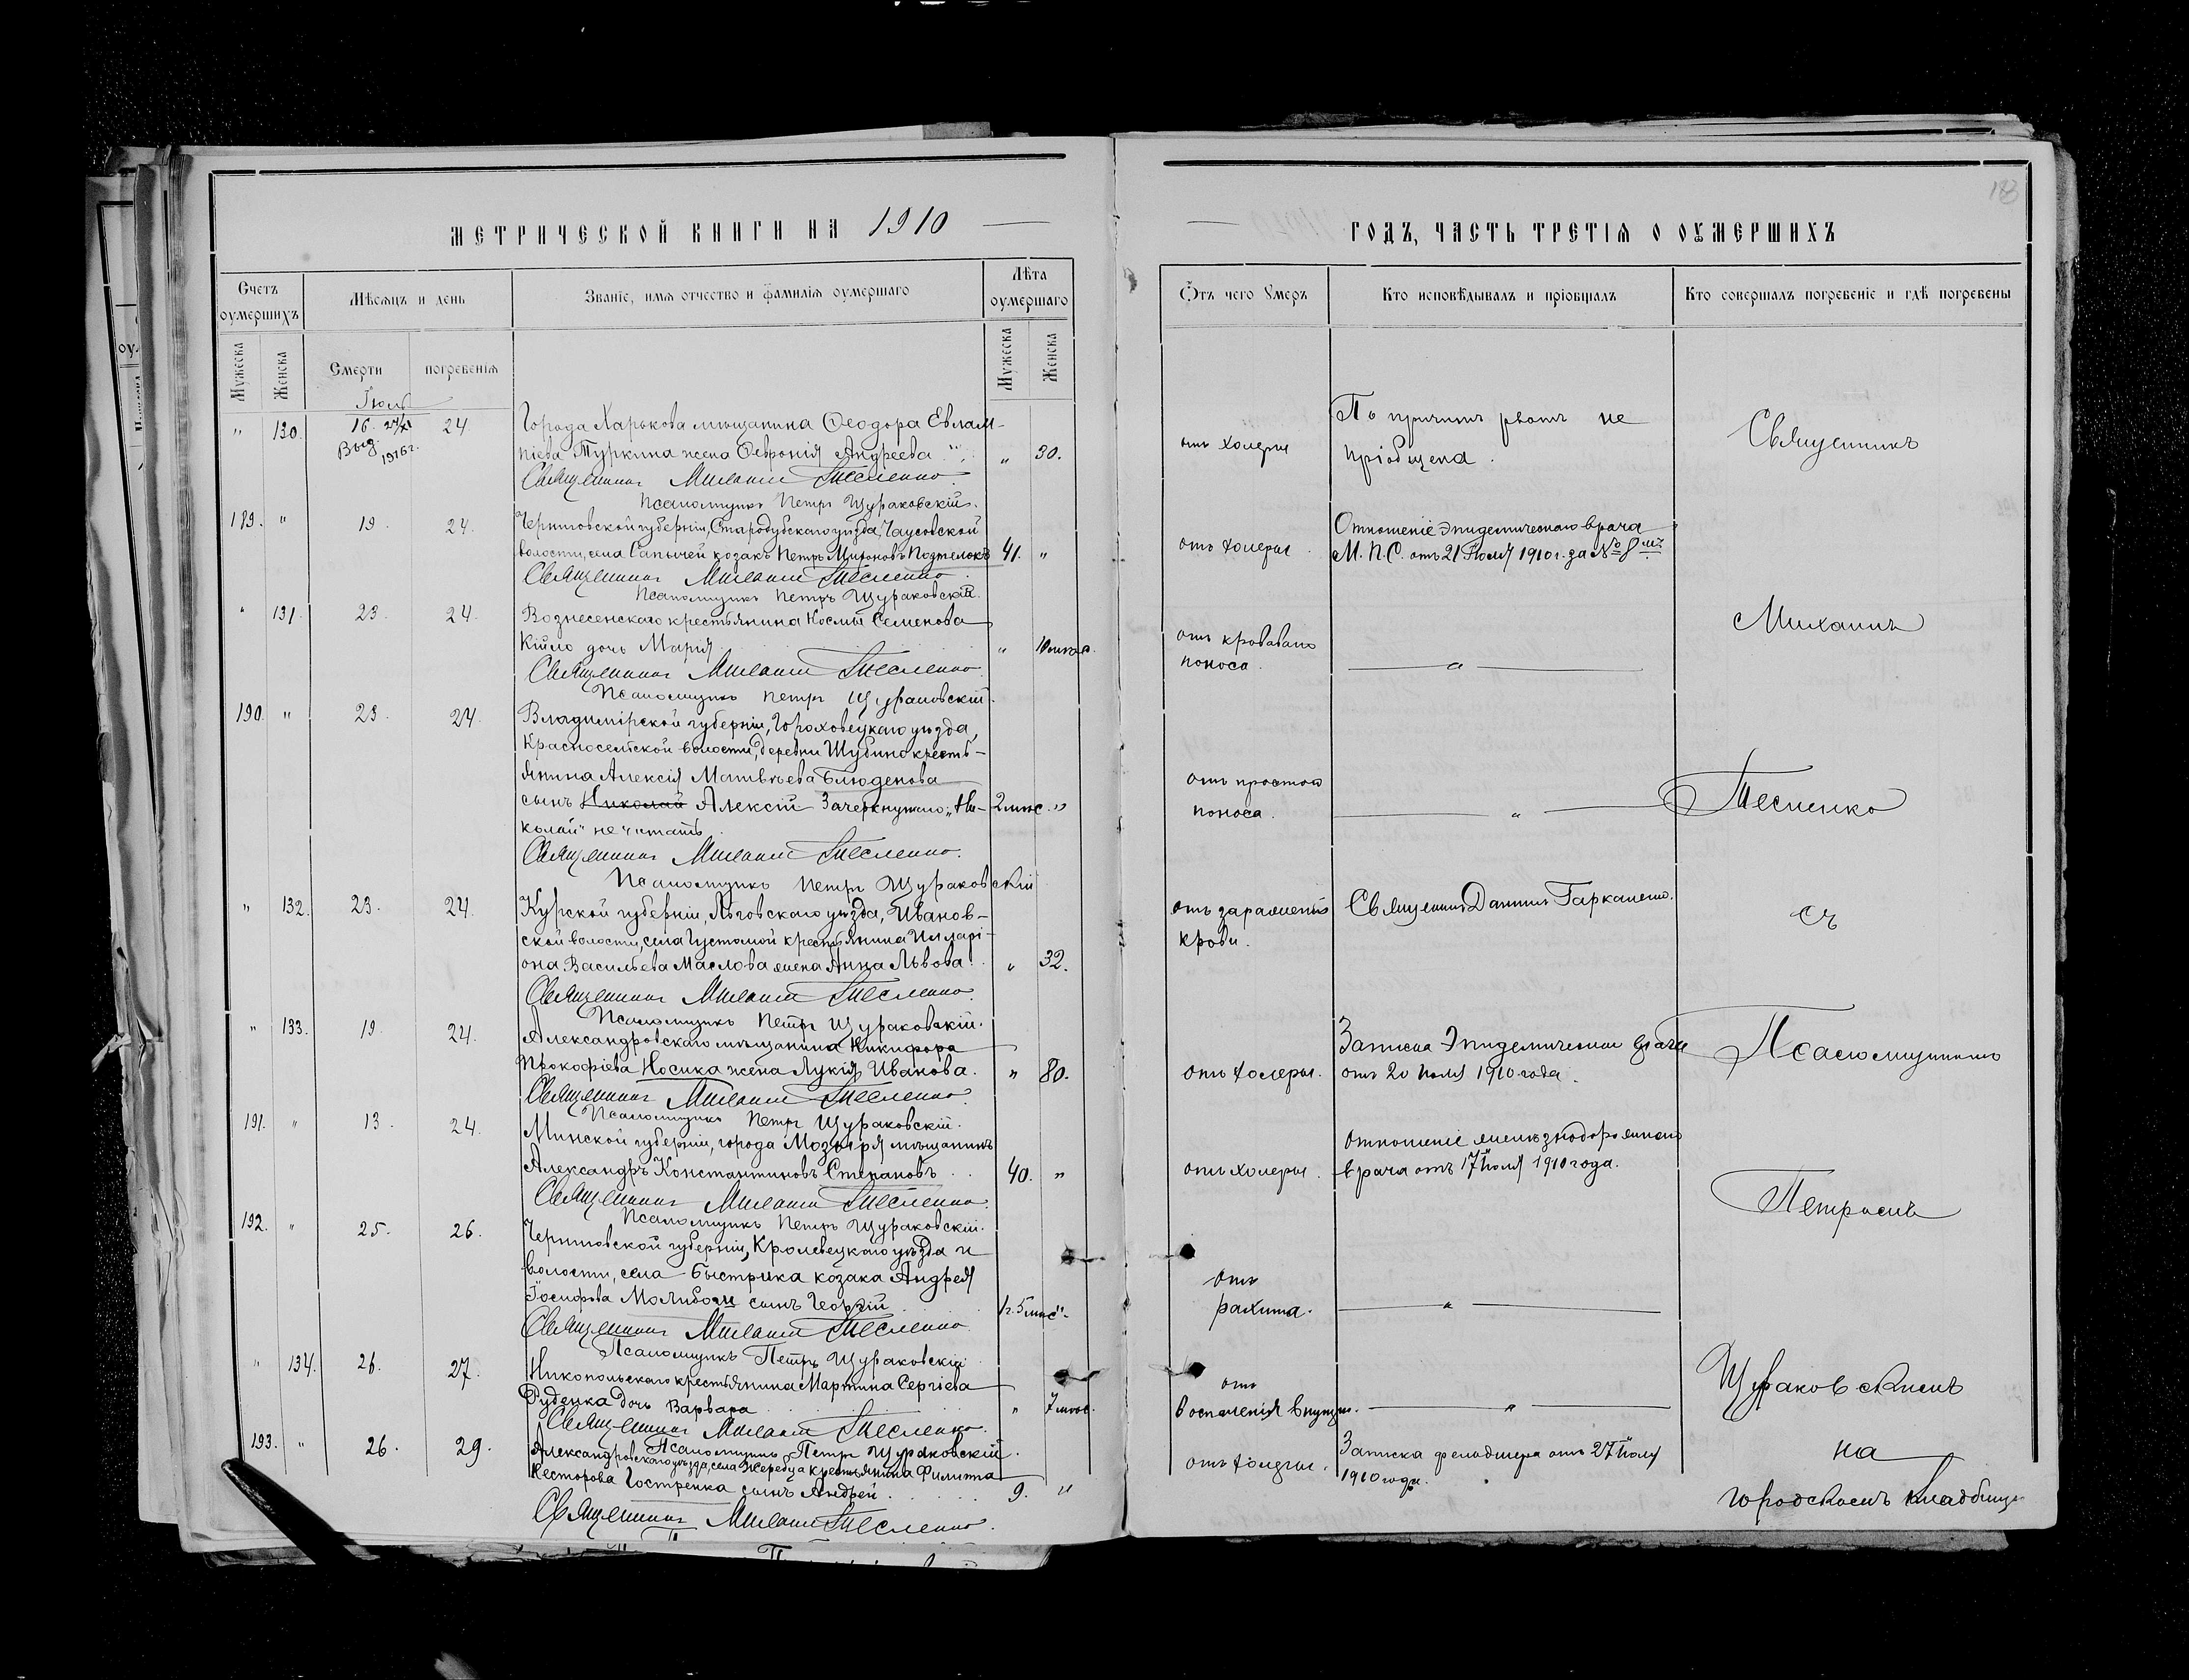 МЕТРИЧЕСКОЙ КНИГИ НА 1910
ГОДЪ, ЧАСТЬ ТРЕТІЯ О ОУМЕРШИХЪ
Счетъ оумершихъ
Мѣсяцъ и день
Званіе, имя отчество и фамилія оумершаго
Лѣта оумершаго
Отъ чего Умеръ
Кто исповѣдывалъ и пріобщалъ
Кто совершалъ погребеніе и гдѣ погребены
Мужеска
Женска
Смерти
погребенія
Мужеска
Женска
Іюль
" 130. 16. 24
Выд. 1916 г.
Города Харькова мѣщанина Ѳеодора Евлам-
піева Туркина жена Ѳевронія Андреева " 30.
Священникъ Михаилъ Тесленко
Псаломщикъ Петръ Щураковскій.
отъ холеры
По причинѣ рвоты не
пріобщена.
189. " 19. 24.
Черниговской губерніи, Стародубскаго уѣзда, Чаусовской
волости, села Сапычей козакъ Петръ 41. "
Священникъ Михаилъ Тесленко
Псаломщикъ Петръ Щураковскій.
отъ холеры.
Отношеніе эпидемическаго врача
М. П. С. отъ 21 Іюля 1910 г. за №
" 131. 23. 24.
Вознесенскаго крестьянина Космы Семенова
дочь Марія " 10 мѣс.
Священникъ Михаилъ Тесленко
Псаломщикъ Петръ Щураковскій.
отъ кроваваго
поноса.
"
190. " 23. 24.
Владимірской губерніи, Гороховецкаго уѣзда,
Красносельской волости, деревни Шубино кресть-
янина Алексія Матвѣева Блюденова
сынъ Николай Алексій. Зачеркнутаго „Ни- 2 мѣс. "
колай" не читать.
Священникъ Михаилъ Тесленко.
Псаломщикъ Петръ Щураковскій
отъ простого
поноса.
"
" 132. 23. 24.
Курской губерніи, Льговскаго уѣзда, Иванов-
ской волости, села Густомой крестьянина Илларі-
она Васильева Маслова жена Анна Львова. " 32.
Священникъ Михаилъ Тесленко
Псаломщикъ Петръ Щураковскій.
отъ зараженія
крови.
Священникъ Даніилъ
" 133. 19. 24.
Александровскаго мѣщанина Никифора
Прокофіева Носика жена Лукія Иванова. " 80.
Священникъ Михаилъ Тесленко
Псаломщикъ Петръ Щураковскій.
отъ холеры.
Записка Эпидемическаго врача
отъ 20 Іюля 1910 года.
191. " 13. 24.
Минской губерніи, города Мозыря мѣщанинъ
Александръ Константиновъ Степановъ. 40. "
Священникъ Михаилъ Тесленко.
Псаломщикъ Петръ Щураковскій.
отъ холеры.
Отношеніе желѣзнодорожнаго
врача отъ 17 Іюля 1910 года.
192. " 25. 26.
Черниговской губерніи, Кролевецкаго уѣзда и
волости, села Быстрика козака Андрея
Іосифова Молибоги сынъ Георгій 1 г. 5 мѣс. "
Священникъ Михаилъ Тесленко
Псаломщикъ Петръ Щураковскій
отъ
рахита.
"
" 134. 26. 27.
Никопольскаго крестьянина Мартина Сергіева
Руденка дочь Варвара " 7 мѣс.
Священникъ Михаилъ Тесленко.
Псаломщикъ Петръ Щураковскій.
отъ
воспаленія внутр.
"
193. " 26. 29.
Александровскаго уѣзда, села Жеребца крестьянина Филиппа
Несторова Гостренка сынъ Андрей. 9. "
Священникъ Михаилъ Тесленко.
отъ холеры.
Записка фельдшера отъ 27 Іюля
1910 года.
Священникъ
Михаилъ
Тесленко
съ
Псаломщикомъ
Петромъ
Щураковскимъ
на
городскомъ кладбищѣ